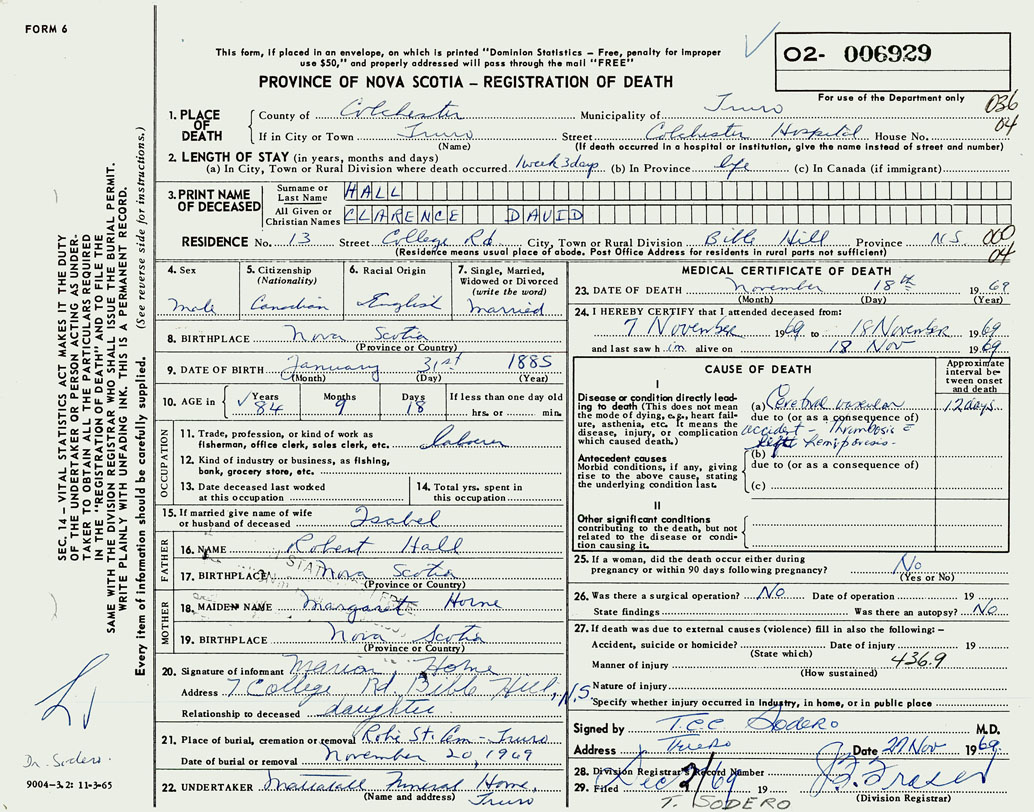 FORM 6
This form, if placed in an envelope, on which is printed "Dominion Statistics – Free, penalty for improper
use $50," and properly addressed will pass through the mail "FREE"
02- 006929
For use of the Department only
PROVINCE OF NOVA SCOTIA – REGISTRATION OF DEATH
036
04
1. PLACE OF DEATH
County of Colchester Municipality of Truro
If in City or Town Truro Street Colchester Hospital House No.
(Name) (If death occurred in a hospital or institution, give the name instead of street and number)
2. LENGTH OF STAY (in years, months and days)
(a) In City, Town or Rural Division where death occurred 1 week 3 days (b) In Province life (c) In Canada (if immigrant)
3. PRINT NAME OF DECEASED
Surname or Last Name HALL
All Given or Christian Names CLARENCE DAVID
RESIDENCE No. 13 Street College Rd City, Town or Rural Division Bible Hill Province N.S.
(Residence means usual place of abode. Post Office Address for residents in rural parts not sufficient)
04
4. Sex
male
5. Citizenship (Nationality)
Canadian
6. Racial Origin
English
7. Single, Married, Widowed or Divorced (write the word)
married
8. BIRTHPLACE Nova Scotia
(Province or Country)
9. DATE OF BIRTH January 31st 1885
(Month) (Day) (Year)
10. AGE in Years 84 Months 9 Days 18 If less than one day old
hrs. or min.
OCCUPATION
11. Trade, profession, or kind of work as
fisherman, office clerk, sales clerk, etc. laborer
12. Kind of industry or business, as fishing,
bank, grocery store, etc.
13. Date deceased last worked
at this occupation
14. Total yrs. spent in
this occupation
15. If married give name of wife
or husband of deceased Isabel
FATHER
16. NAME Robert Hall
17. BIRTHPLACE Nova Scotia
(Province or Country)
MOTHER
18. MAIDEN NAME Margaret Horne
19. BIRTHPLACE Nova Scotia
(Province or Country)
20. Signature of informant Marion Horne
Address 7 College Rd Bible Hill, N.S
Relationship to deceased daughter
21. Place of burial, cremation or removal Robie St. Cem - Truro
Date of burial or removal November 20, 1969
22. UNDERTAKER Mattatall Funeral Home,
(Name and address) Truro
MEDICAL CERTIFICATE OF DEATH
23. DATE OF DEATH November 18th 1969
(Month) (Day) (Year)
24. I HEREBY CERTIFY that I attended deceased from:
7 November 1969 to 18 November 1969
and last saw him alive on 18 Nov 1969
CAUSE OF DEATH
Approximate interval between onset and death
I
Disease or condition directly leading to death (This does not mean the mode of dying, e.g., heart failure, asthenia, etc. It means the disease, injury, or complication which caused death.)
(a) Cerebral vascular 12 days
due to (or as a consequence of)
accident - thrombosis
hemiparesis.
Antecedent causes
Morbid conditions, if any, giving rise to the above cause, stating the underlying condition last.
(b)
due to (or as a consequence of)
(c)
II
Other significant conditions
contributing to the death, but not
related to the disease or condition causing it.
25. If a woman, did the death occur either during
pregnancy or within 90 days following pregnancy? No
(Yes or No)
26. Was there a surgical operation? No Date of operation 19
State findings Was there an autopsy? No
27. If death was due to external causes (violence) fill in also the following: –
Accident, suicide or homicide? Date of injury 19
(State which)
Manner of injury 436.9
(How sustained)
Nature of injury
Specify whether injury occurred in Industry, in home, or in public place
Signed by T.CC Sodero M.D.
Address Truro Date 27 Nov 1969
28. Division Registrar's Record Number
29. Filed Dec 2/69 19 J.F. Fraser
(Division Registrar)
T. SODERO
SEC. 14 – VITAL STATISTICS ACT MAKES IT THE DUTY
OF THE UNDERTAKER OR PERSON ACTING AS UNDER-
TAKER TO OBTAIN ALL THE PARTICULARS REQUIRED
IN THE "REGISTRATION OF DEATH" AND TO FILE THE
SAME WITH THE DIVISION REGISTRAR WHO SHALL ISSUE THE BURIAL PERMIT.
WRITE PLAINLY WITH UNFADING INK. THIS IS A PERMANENT RECORD.
Every item of information should be carefully supplied. (See reverse side for instructions.)
Dr. Sodero
9004–3.2: 11-3-65